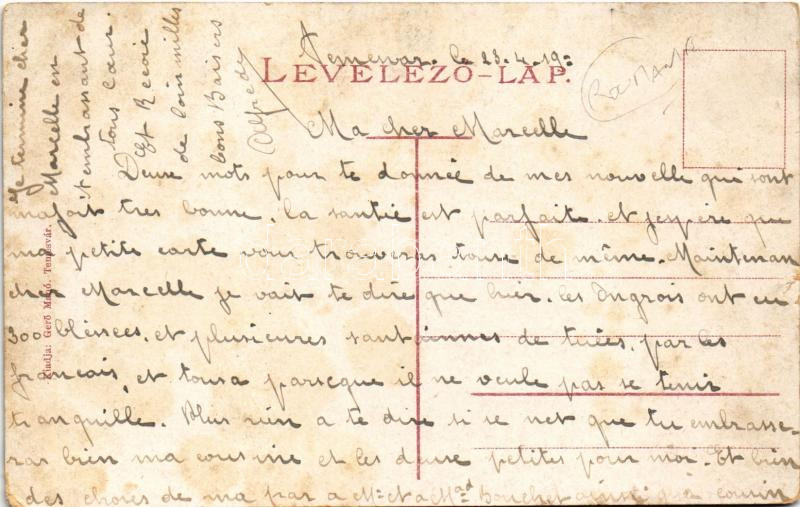 Temesvar. le 23.4.19
LEVELEZŐ-LAP.
Roumanie
Ma cher Marcelle
Deuse mots pour te donnée de mes nouvelle qui sont
ma foit tres bonne. la santié est parfaite. et j'espère que
ma petite carte vous trouveras touse de même. Maintenan
cher Marcelle je vait te dire que hier. les Ongrois ont eu
300 bléssees. et plusieures santaiennes de tuées. par les
francais, et tousa parseque il ne veule pas se tenir
tranquille. Plus rien a te dire si se net que tu embrasse-
ras bien ma cousine et les deuse petites pour moi. Et bien
des choses de ma par a Mr et a Mad Bouchet ainsi que cousin
Je termine cher
Marcelle en
t'embrassant de
tous cœur.
Et Recoie
de loin milles
bons Baisers
Alfred
Kiadja: Gerő Manó, Temesvár.